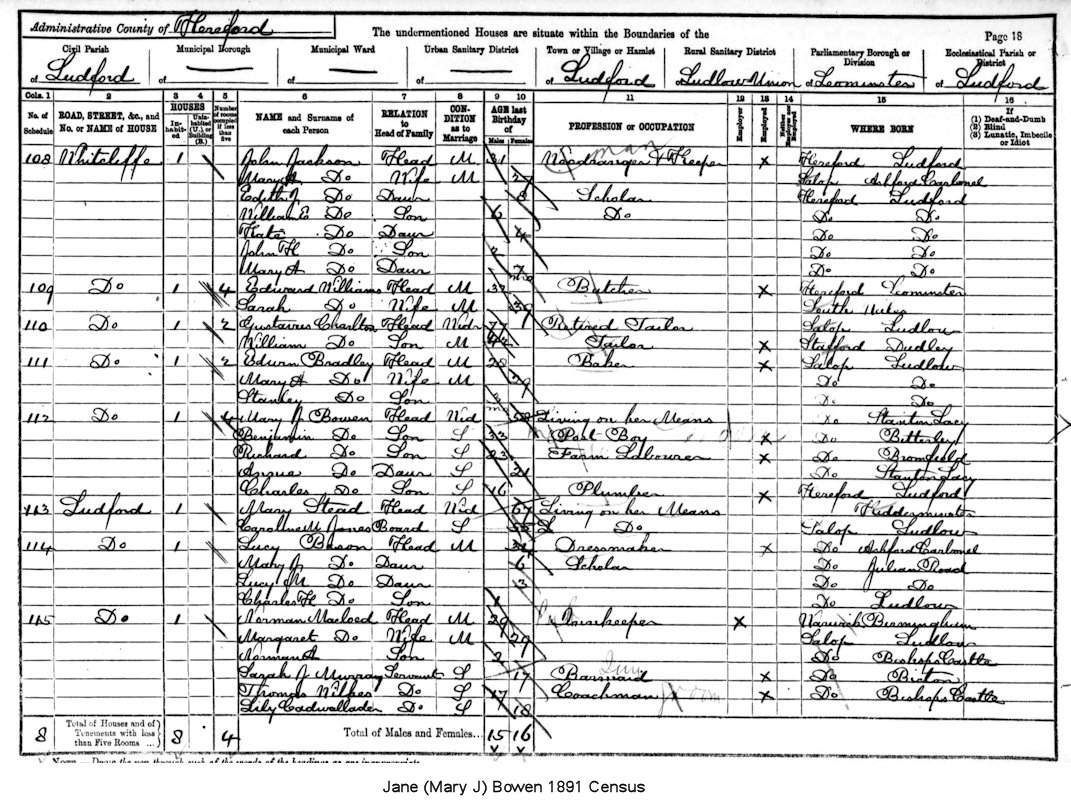 Administrative County of Hereford
The undermentioned Houses are situate within the Boundaries of the
Page 18
Civil Parish of Ludford
Municipal Borough of
Municipal Ward of
Urban Sanitary District of
Town or Village or Hamlet of Ludford
Rural Sanitary District of Ludlow Union
Parliamentary Borough or Division of Leominster
Ecclesiastical Parish or District of Ludford
Cols. 1 2 3 4 5 6 7 8 9 10 11 12 13 14 15 16
No. of Schedule
ROAD, STREET, &c., and No. or NAME of HOUSE
HOUSES
Inhabited
Uninhabited (U.) or Building (B.)
Number of rooms occupied if less than five
NAME and Surname of each Person
RELATION to Head of Family
CONDITION as to Marriage
AGE last Birthday of
Males Females
PROFESSION or OCCUPATION
Employer
Employed
Neither Employer nor Employed
WHERE BORN
If
(1) Deaf-and-Dumb
(2) Blind
(3) Lunatic, Imbecile or Idiot
108 Whitcliffe 1 John Jackson Head M 31 Keeper x Hereford Ludford
Mary A Do Wife M Salop Ashford Carbonel
Edith J Do Daur 8 Scholar Hereford Ludford
William E Do Son 6 Do Do Do
Kate Do Daur 4 Do Do
John H Do Son 2 Do Do
Mary A Do Daur 7 mo Do Do
109 Do 1 4 Edward Williams Head M Butcher x Hereford Leominster
Sarah Do Wife M 39
110 Do 1 2 Gustavus Charlton Head Widr 77 Retired Tailor Salop Ludlow
William Do Son M Tailor x Stafford Dudley
111 Do 1 2 Edwin Bradley Head M 28 Baker x Salop Ludlow
Mary A Do Wife M 29 Do Do
Stanley Do Son Do Do
112 Do 1 4 Mary J Bowen Head Wid 58 Living on her Means Do Stanton Lacy
Benjamin Do Son S 33 Post Boy x Do Bitterley
Richard Do Son S 23 Farm Labourer x Do Bromfield
Annie Do Daur S 21 Do Stanton Lacy
Charles Do Son S 16 Plumber x Hereford Ludford
113 Ludford 1 Mary Stead Head Wid 67 Living on her Means Kidderminster
Caroline M Jones Board S Do Salop Ludlow
114 Do 1 Lucy Head M Dressmaker x Do Ashford Carbonel
Mary J Do Daur 6 Scholar Do
Lucy M Do Daur 3 Do Do
Charles H Do Son 1 Do Ludlow
115 Do 1 Norman Macloed Head M 29 Innkeeper x Warwick Birmingham
Margaret Do Wife M 29 Salop Ludlow
Norman A Son 2 Do Bishops Castle
Sarah J Murray Servant S 17 Barmaid x Do
Thomas Wilkes Do S 17 Coachman Groom x Do Bishops Castle
Lily Cadwallader Do S 18
8 Total of Houses and of Tenements with less than Five Rooms ... 8 4 Total of Males and Females... 15 16
Jane (Mary J) Bowen 1891 Census